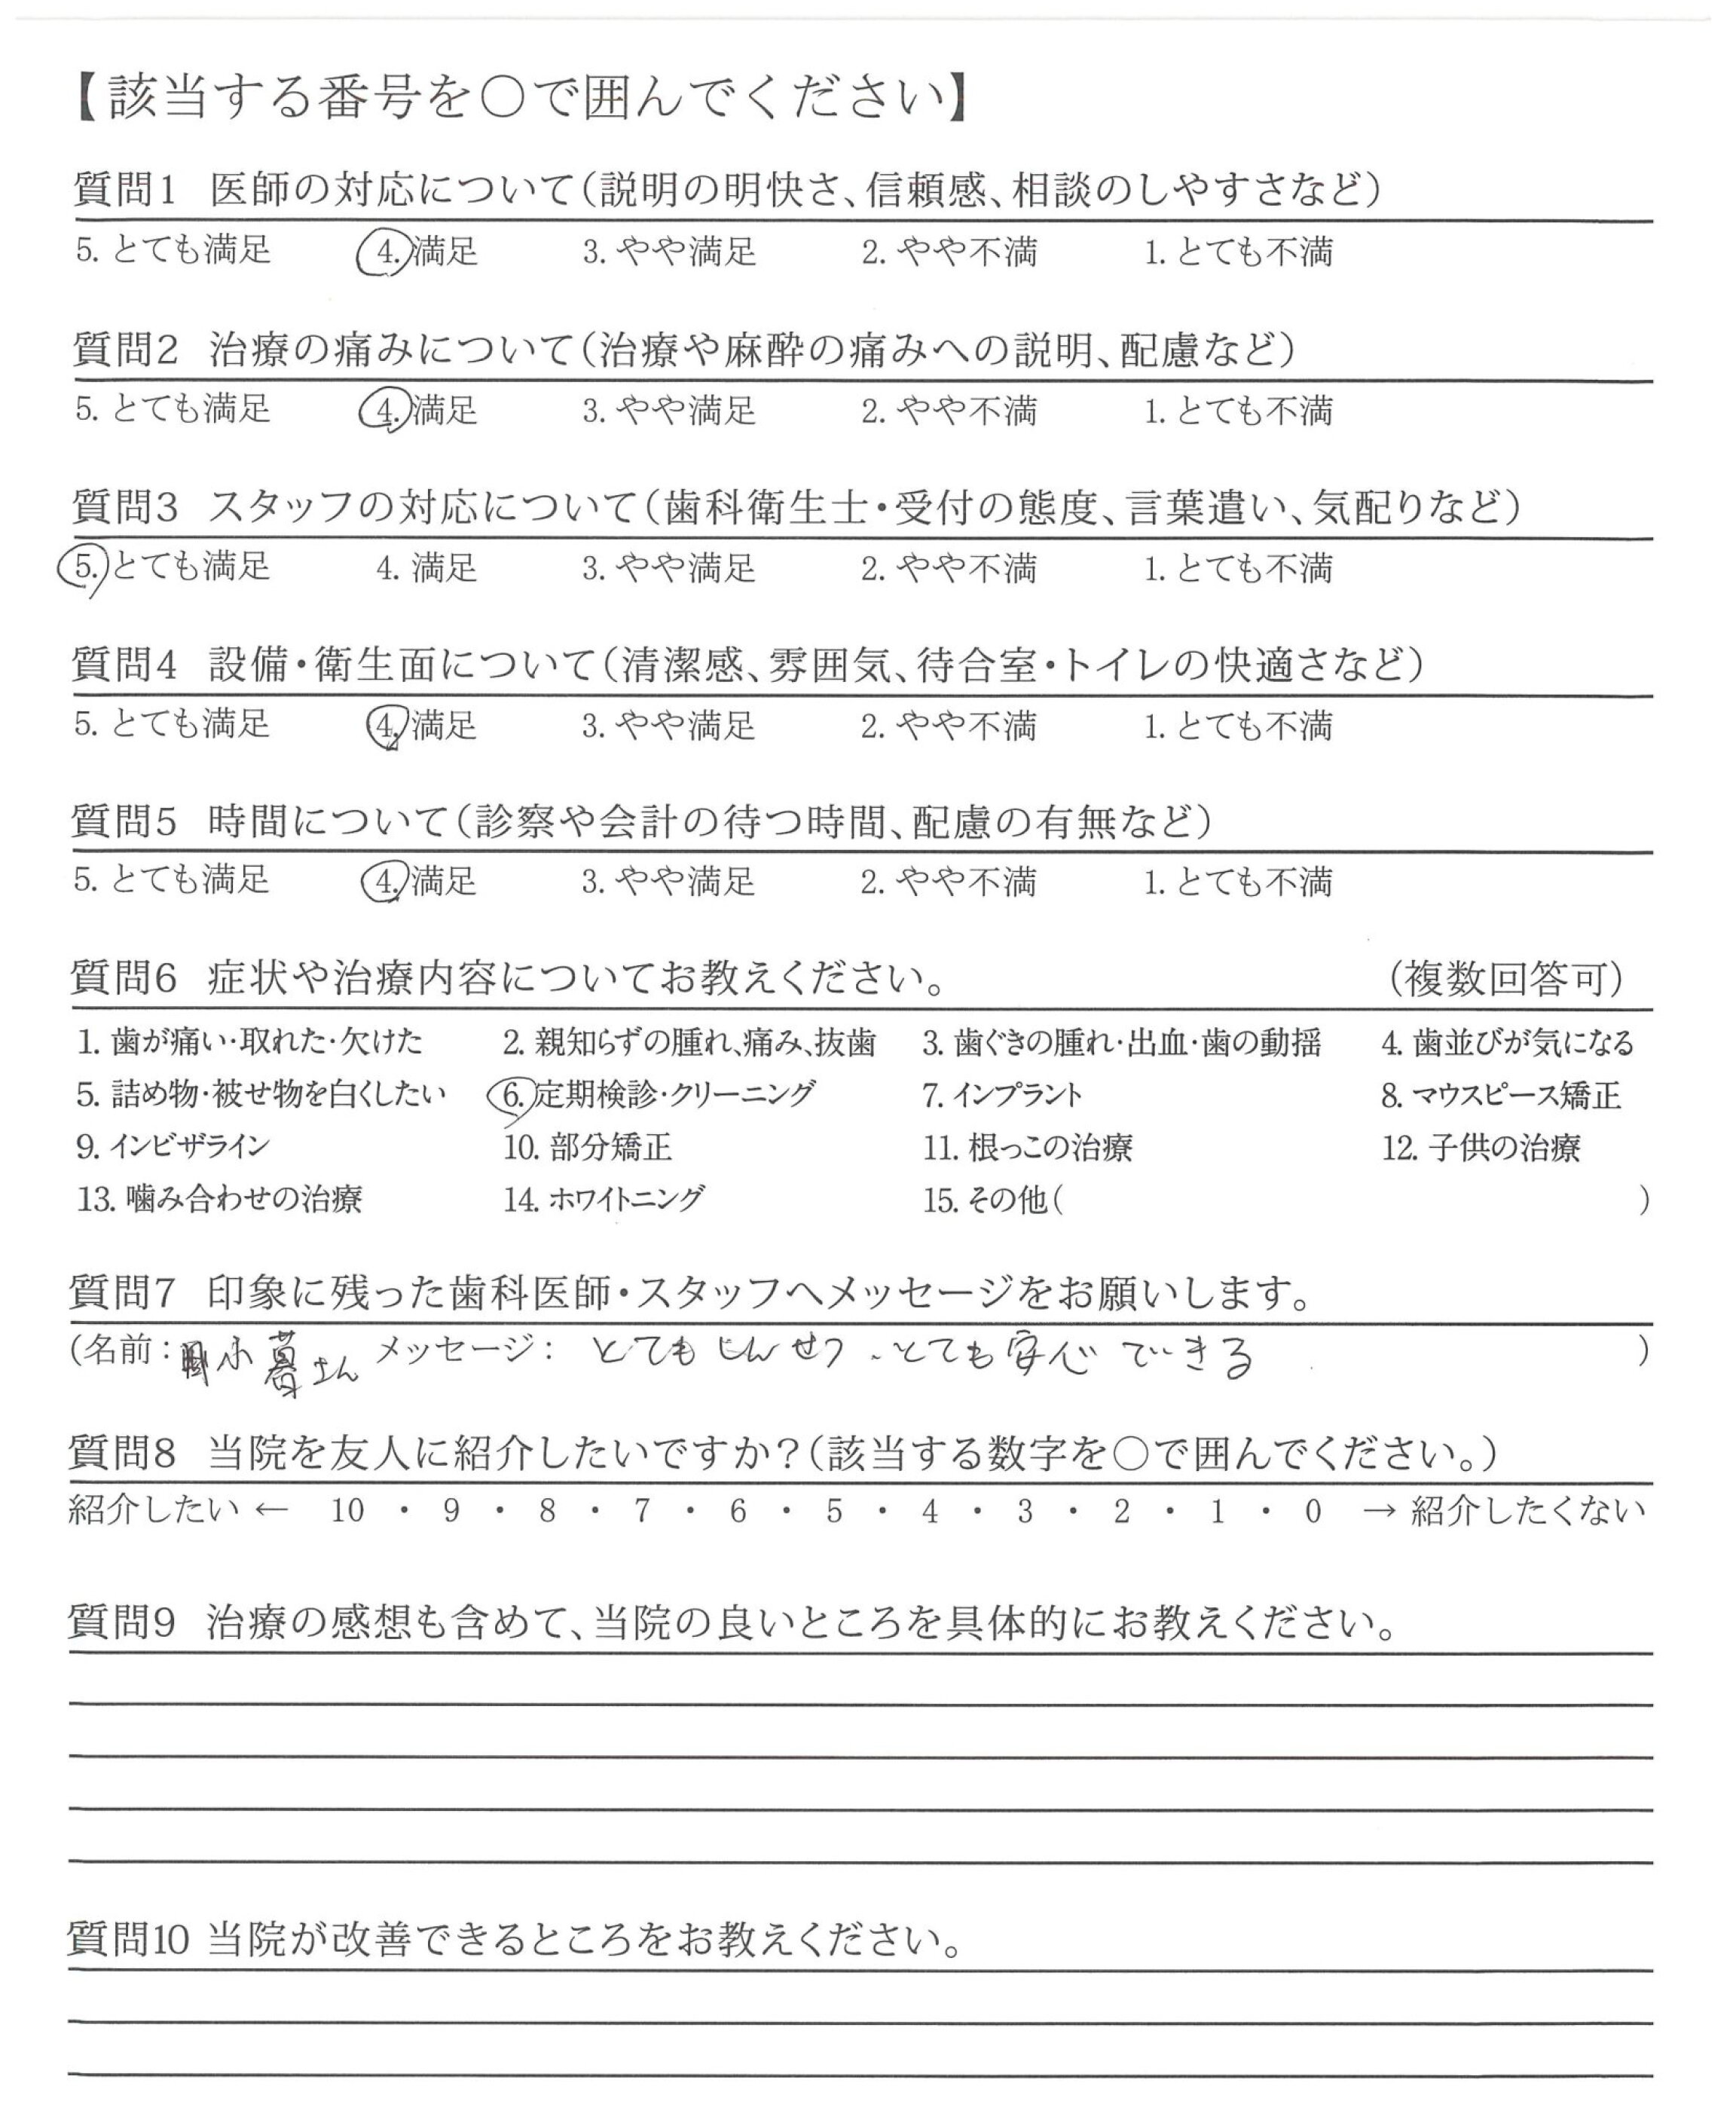 【該当する番号を○で囲んでください】
質問1 医師の対応について(説明の明快さ、信頼感、相談のしやすさなど)
5. とても満足 4. 満足 3. やや満足 2. やや不満 1. とても不満
質問2 治療の痛みについて(治療や麻酔の痛みへの説明、配慮など)
5. とても満足 4. 満足 3. やや満足 2. やや不満 1. とても不満
質問3 スタッフの対応について(歯科衛生士・受付の態度、言葉遣い、気配りなど)
5. とても満足 4. 満足 3. やや満足 2. やや不満 1. とても不満
質問4 設備・衛生面について(清潔感、雰囲気、待合室・トイレの快適さなど)
5. とても満足 4. 満足 3. やや満足 2. やや不満 1. とても不満
質問5 時間について(診察や会計の待つ時間、配慮の有無など)
5. とても満足 4. 満足 3. やや満足 2. やや不満 1. とても不満
質問6 症状や治療内容についてお教えください。 (複数回答可)
1. 歯が痛い・取れた・欠けた 2. 親知らずの腫れ、痛み、抜歯 3. 歯ぐきの腫れ・出血・歯の動揺 4. 歯並びが気になる
5. 詰め物・被せ物を白くしたい 6. 定期検診・クリーニング 7. インプラント 8. マウスピース矯正
9. インビザライン 10. 部分矯正 11. 根っこの治療 12. 子供の治療
13. 噛み合わせの治療 14. ホワイトニング 15. その他( )
質問7 印象に残った歯科医師・スタッフへメッセージをお願いします。
(名前: さん メッセージ: とてもしんせつ、とても安心できる )
質問8 当院を友人に紹介したいですか?(該当する数字を○で囲んでください。)
紹介したい ← 10 ・ 9 ・ 8 ・ 7 ・ 6 ・ 5 ・ 4 ・ 3 ・ 2 ・ 1 ・ 0 → 紹介したくない
質問9 治療の感想も含めて、当院の良いところを具体的にお教えください。
質問10 当院が改善できるところをお教えください。